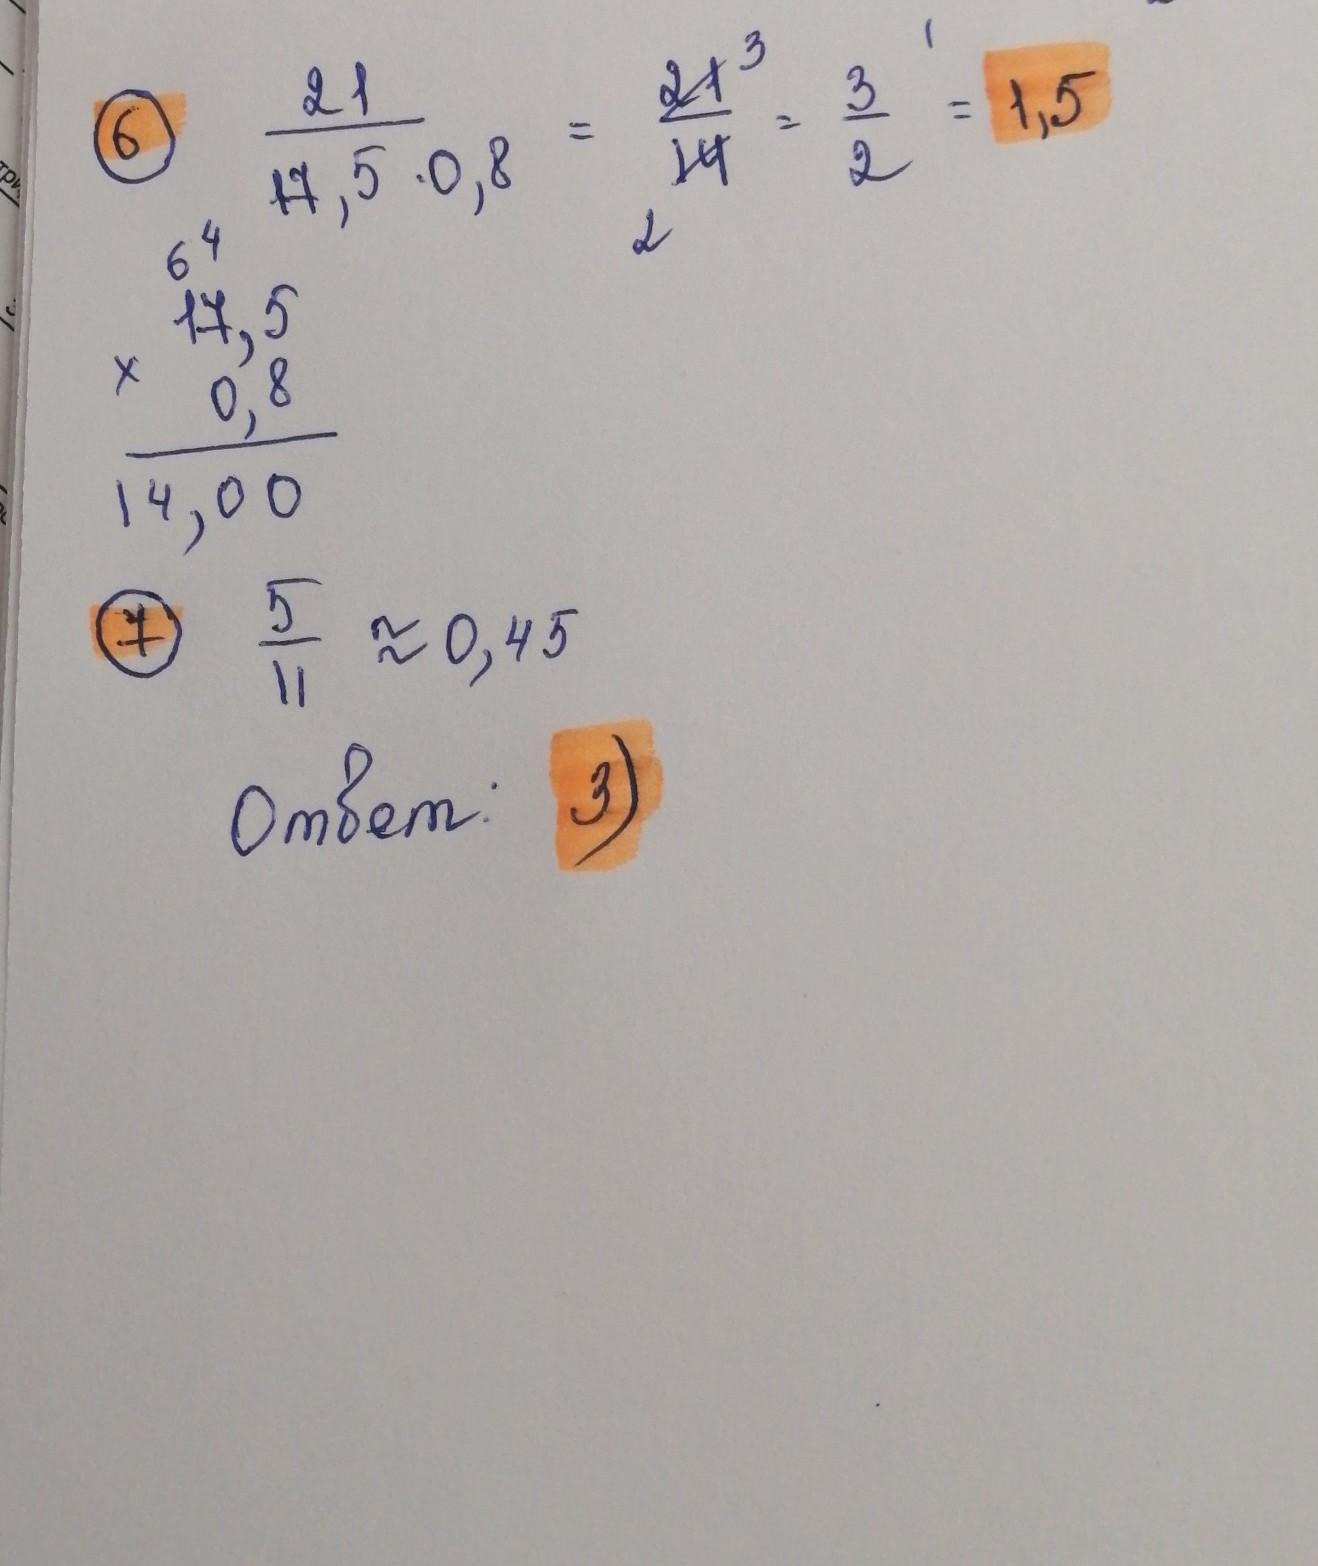 6 21/(17,5 · 0,8) = 21/14 = 3/2 = 1,5
3
2
6 4
17,5
× 0,8
14,00
7 5/11 ≈ 0,45
Ответ: 3)